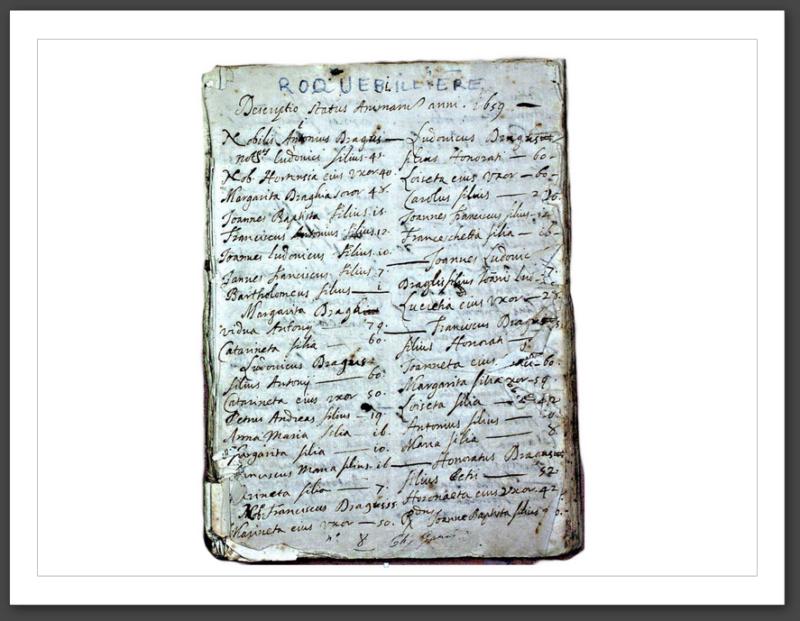 ROQUEBILLIERE
Descriptio Status Animarũ anni 1659
Nobilis Antonius Bragius
Ludovici filius 41
Nob. Hortensia eius vxor 40
Margarita Braghia soror 48
Joannes Baptista filius 15
Franciscus Antonius filius 12
Joannes Ludovicus filius 10
Joannes Franciscus filius 7
Bartholomeus filius 1
Margarita Braghia
vidua Antonij 79
Catarineta filia 60
Ludovicus Bragius
filius Antonij 60
Catarineta eius vxor 50
Petrus Andreas filius 19
Anna Maria filia 16
Margarita filia 10
Franciscus Maria filius 16
filia 7
Nob. Franciscus Bragius 55
eius vxor 50
Ludovicus Bragius
filius Honorati 60
Loiseta eius vxor 60
Carolus filius
Joannes Franciscus filius
Franceschetta filia 16
Joannes Ludovic
Bragius filius
Lucretia eius vxor 28
Franciscus Bragius
filius Honorati
Joanneta eius
Margarita filia 59
Loiseta filia
Antonius filius 10
Maria filia 8
Honoratus Bragius
filius 52
Honoraeta eius vxor 42
Joanne Baptista filius
nº 8